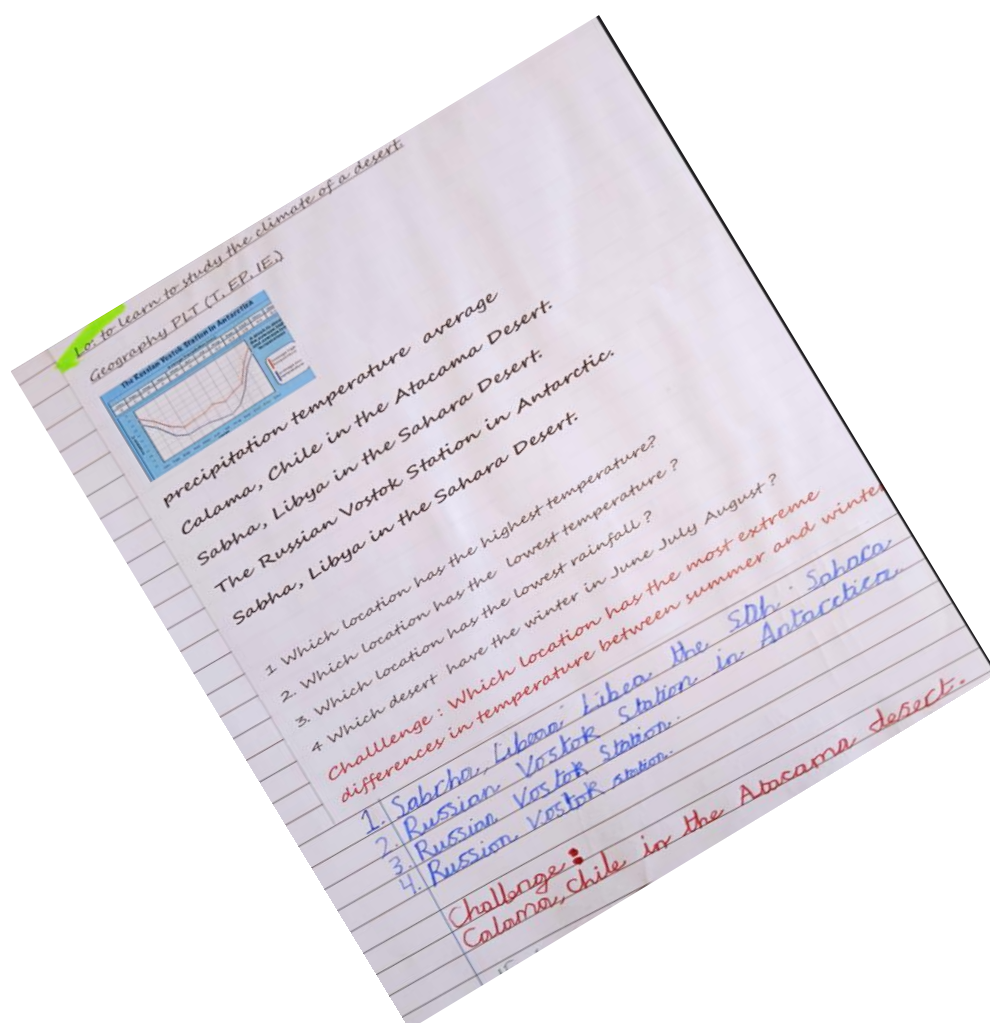 Lo: to learn to study the climate of a desert.
Geography PLT (T, EP, IE,)
The Russian Vostok Station in Antarctica
precipitation temperature average
Calama, Chile in the Atacama Desert.
Sabha, Libya in the Sahara Desert.
The Russian Vostok Station in Antarctic.
Sabha, Libya in the Sahara Desert.
1 Which location has the highest temperature?
2. Which location has the lowest temperature ?
3. Which location has the lowest rainfall ?
4 Which desert have the winter in June July August ?
Challlenge : Which location has the most extreme
differences in temperature between summer and winter
1. Sabcha, Libea the Sahara
2. Russian Vostok Station in Antarctica.
3. Russian Vostok Station.
4. Russian Vostok station.
Challenge:
Calama, Chile in the Atacama desert.